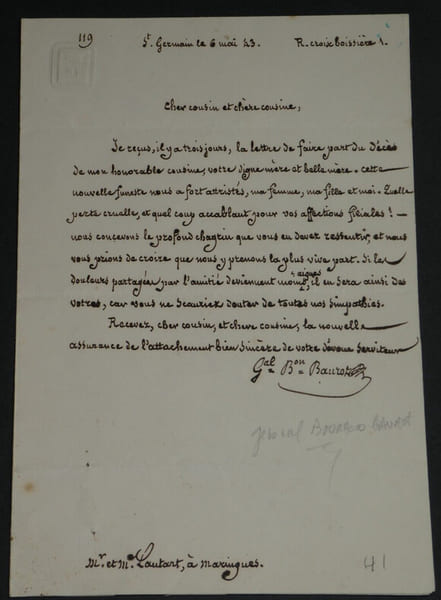 119
St. Germain le 6 mai 43. R. croix boissière 1.
Cher cousin et chère cousine,
Je reçus, il y a trois jours, la lettre de faire part du décès
de mon honorable cousine, votre digne mère et belle mère. cette
nouvelle funeste nous a fort attristés, ma femme, ma fille et moi. Quelle
perte cruelle, et quel coup accablant pour vos affections filiales! —
nous concevons le profond chagrin que vous en devez ressentir, et nous
vous prions de croire que nous y prenons la plus vive part. Si les
douleurs partagées par l'amitié deviennent moins aigues, il en sera ainsi des
votres, car vous ne sauriez douter de toutes nos simpathies.
Recevez, cher cousin, et chere cousine, la nouvelle
assurance de l'attachement bien sincère de votre dévoué serviteur
Gal Bon Baurot
Mr. et Me. Lautart, à Maringues.
41